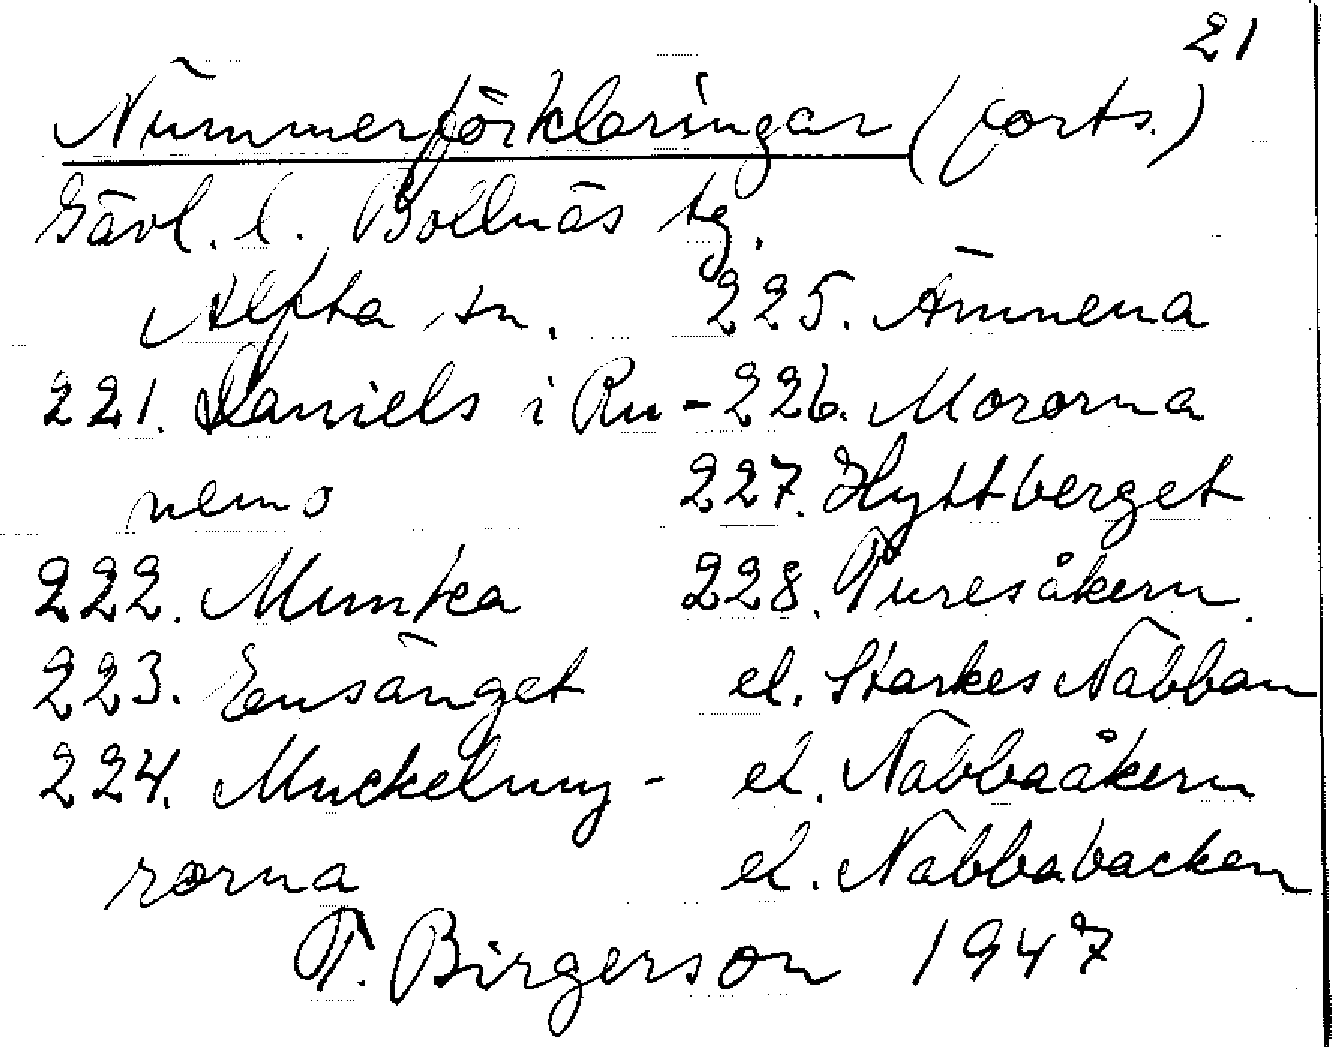 21
Nummerförklaringar (forts.)
Gävl. l. Bollnäs tg.
Alfta sn.
221. Daniels i Ru-
nemo
222. Munka
223. Ensänget
224. Muckelmy-
rorna
225. Ämnena
226. Mororna
227. Hyttberget
228. Turesåkern
el. Starkes Nabban
el. Nabbaåkern
el. Nabbabacken
T. Birgerson 1947